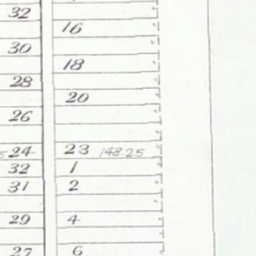 32
16
30
18
28
20
26
24 23 148.25
32 1
31 2
29 4
27 6